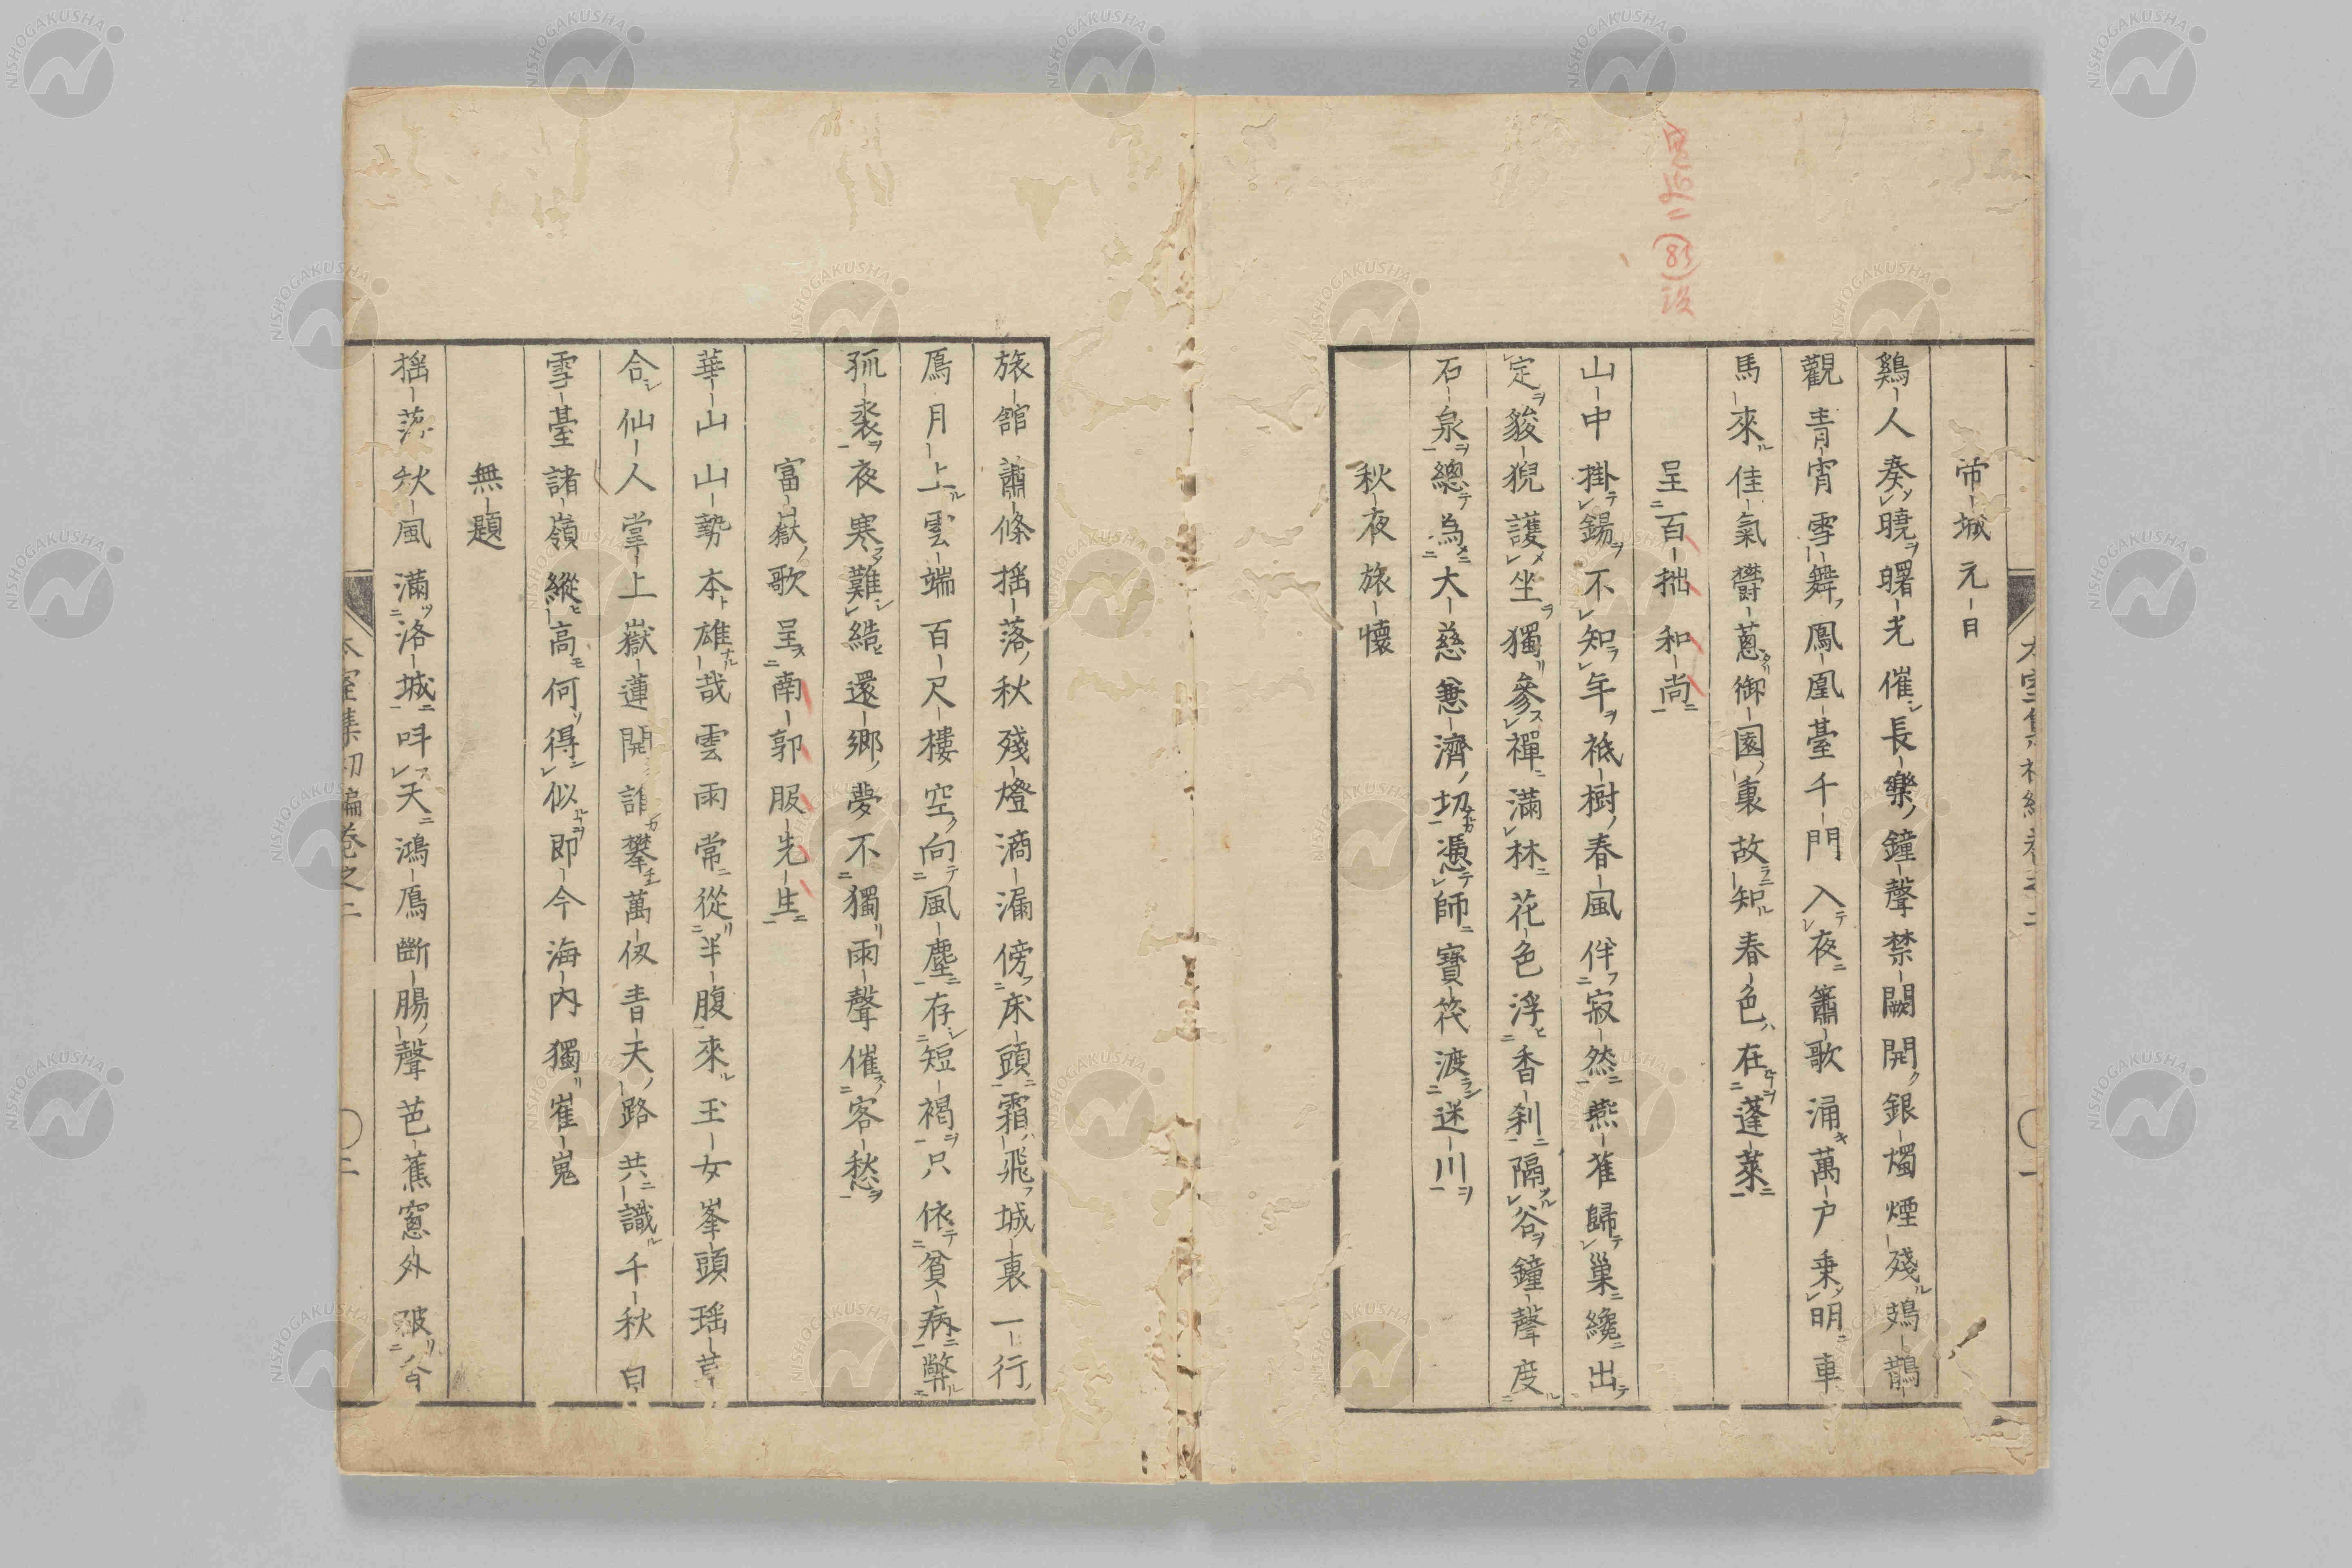 帝城元日
鷄人奏曉曙光催長樂鐘聲禁闕開銀燭煙殘鳷鵲
觀青宵雪舞鳳凰臺千門入夜簫歌涌萬戶乗明車
馬來佳氣欝蔥御園裏故知春色在蓬萊
呈百拙和尚
山中掛錫不知年祗樹春風伴寂然燕雀歸巢纔出
定狻猊護坐獨參禪滿林花色浮香刹隔谷鐘聲度
石泉總為大慈兼濟切憑師寶筏渡迷川
秋夜旅懷
旅舘蕭條揺落秋殘燈滴漏傍床頭霜飛城裏一行
鴈月上雲端百尺樓空向風塵存短褐只依貧病弊
孤裘夜寒難結還鄉夢不獨雨聲催客愁
富嶽歌呈南郭服先生
華山山勢本雄哉雲雨常從半腹來玉女峯頭瑶草
合仙人掌上嶽蓮開誰攀萬仞青天路共識千秋白
雪臺諸嶺縱高何得似即今海內獨崔嵬
無題
揺落秋風滿洛城呌天鴻鴈斷腸聲芭蕉窓外破
室集初編卷之二
二
NISHOGAKUSHA